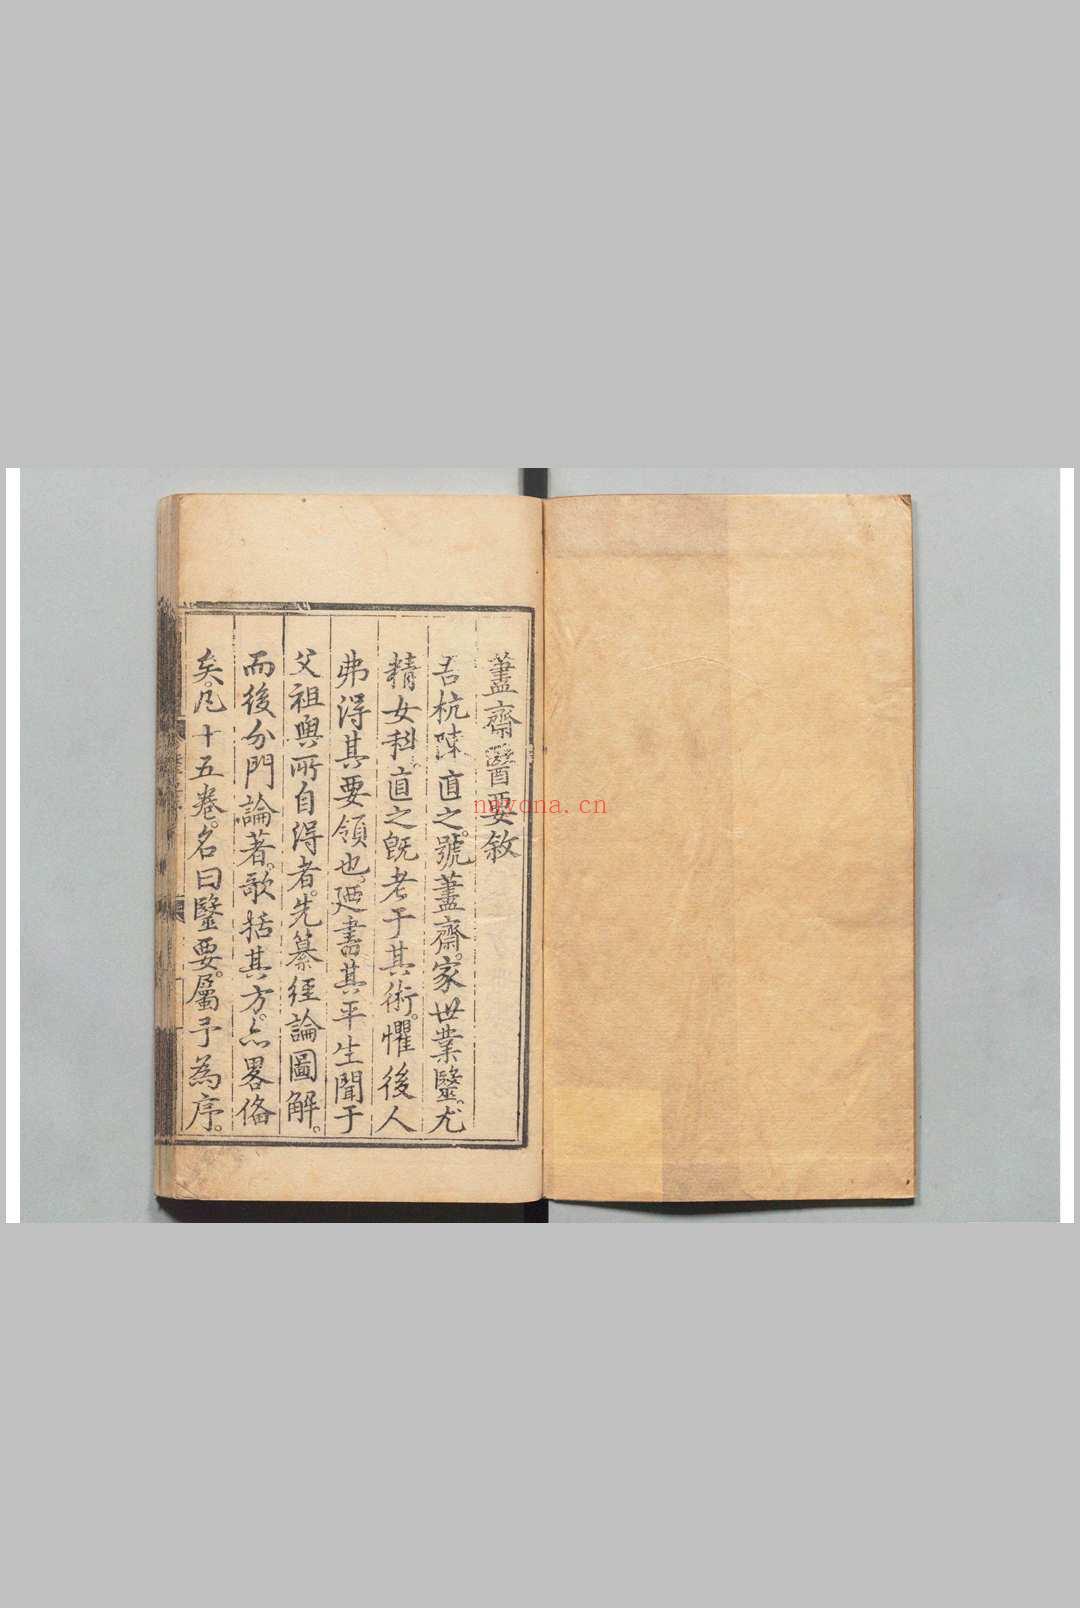 藎齋醫要敘
吾杭陳直之。號藎齋。家世業醫。尤
精女科。直之旣老于其術。懼後人
弗得其要領也。廼書其平生聞于
父祖與所自得者。先纂經論圖解。
而後分門論著。歌括其方。亦畧俻
矣。凡十五卷。名曰醫要。屬予為序。
nayona.cn